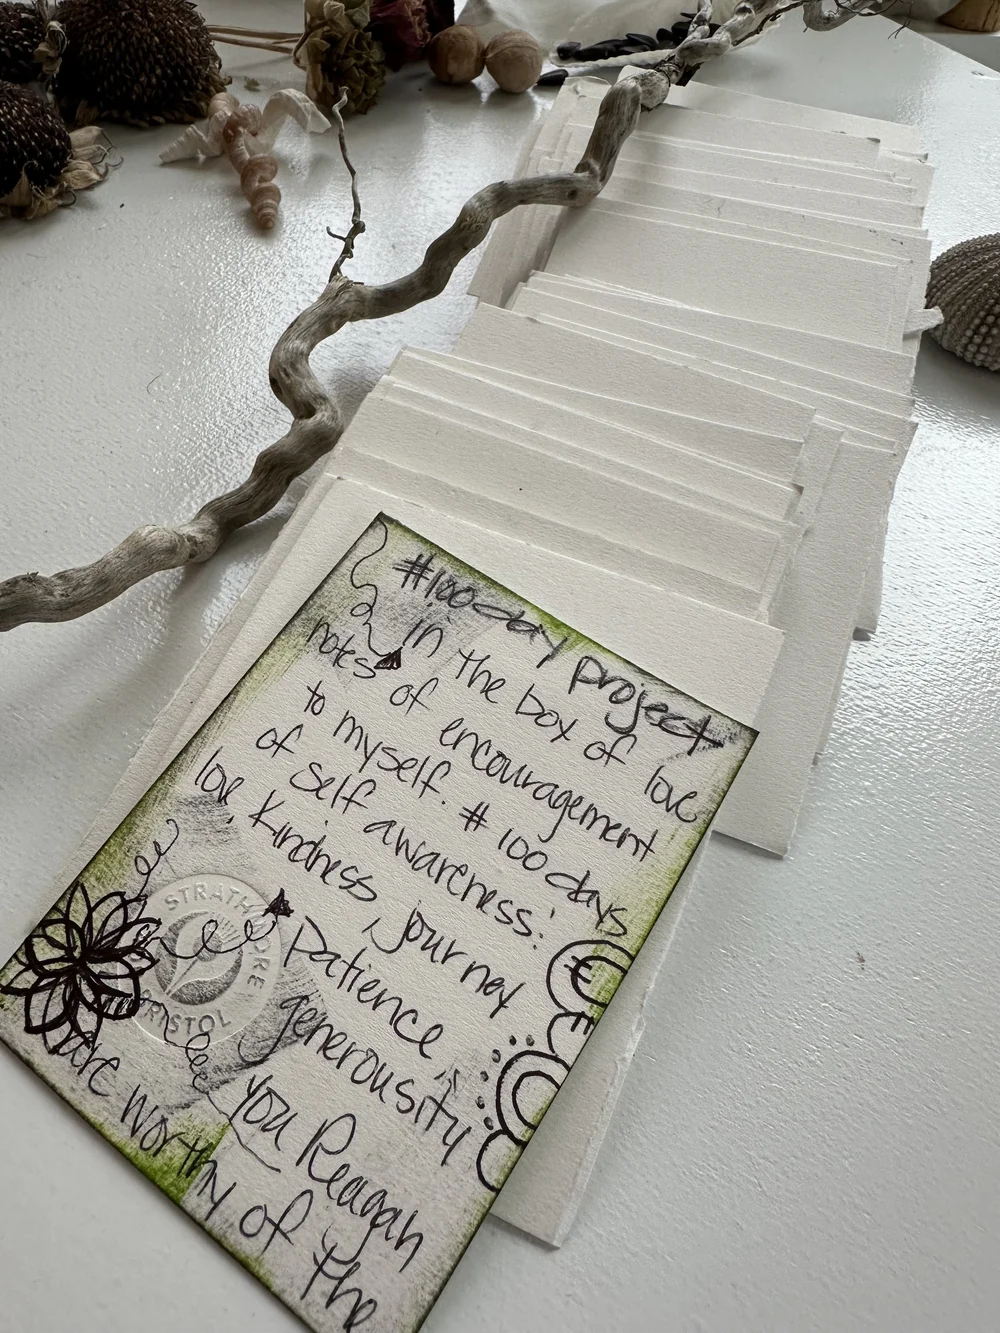 #100 day project
in the box of love
notes of encouragement
to myself. #100days
of self awareness:
love, kindness, journey
Patience,
generosity
STRATHMORE
BRISTOL
You Reagan
are worthy of the